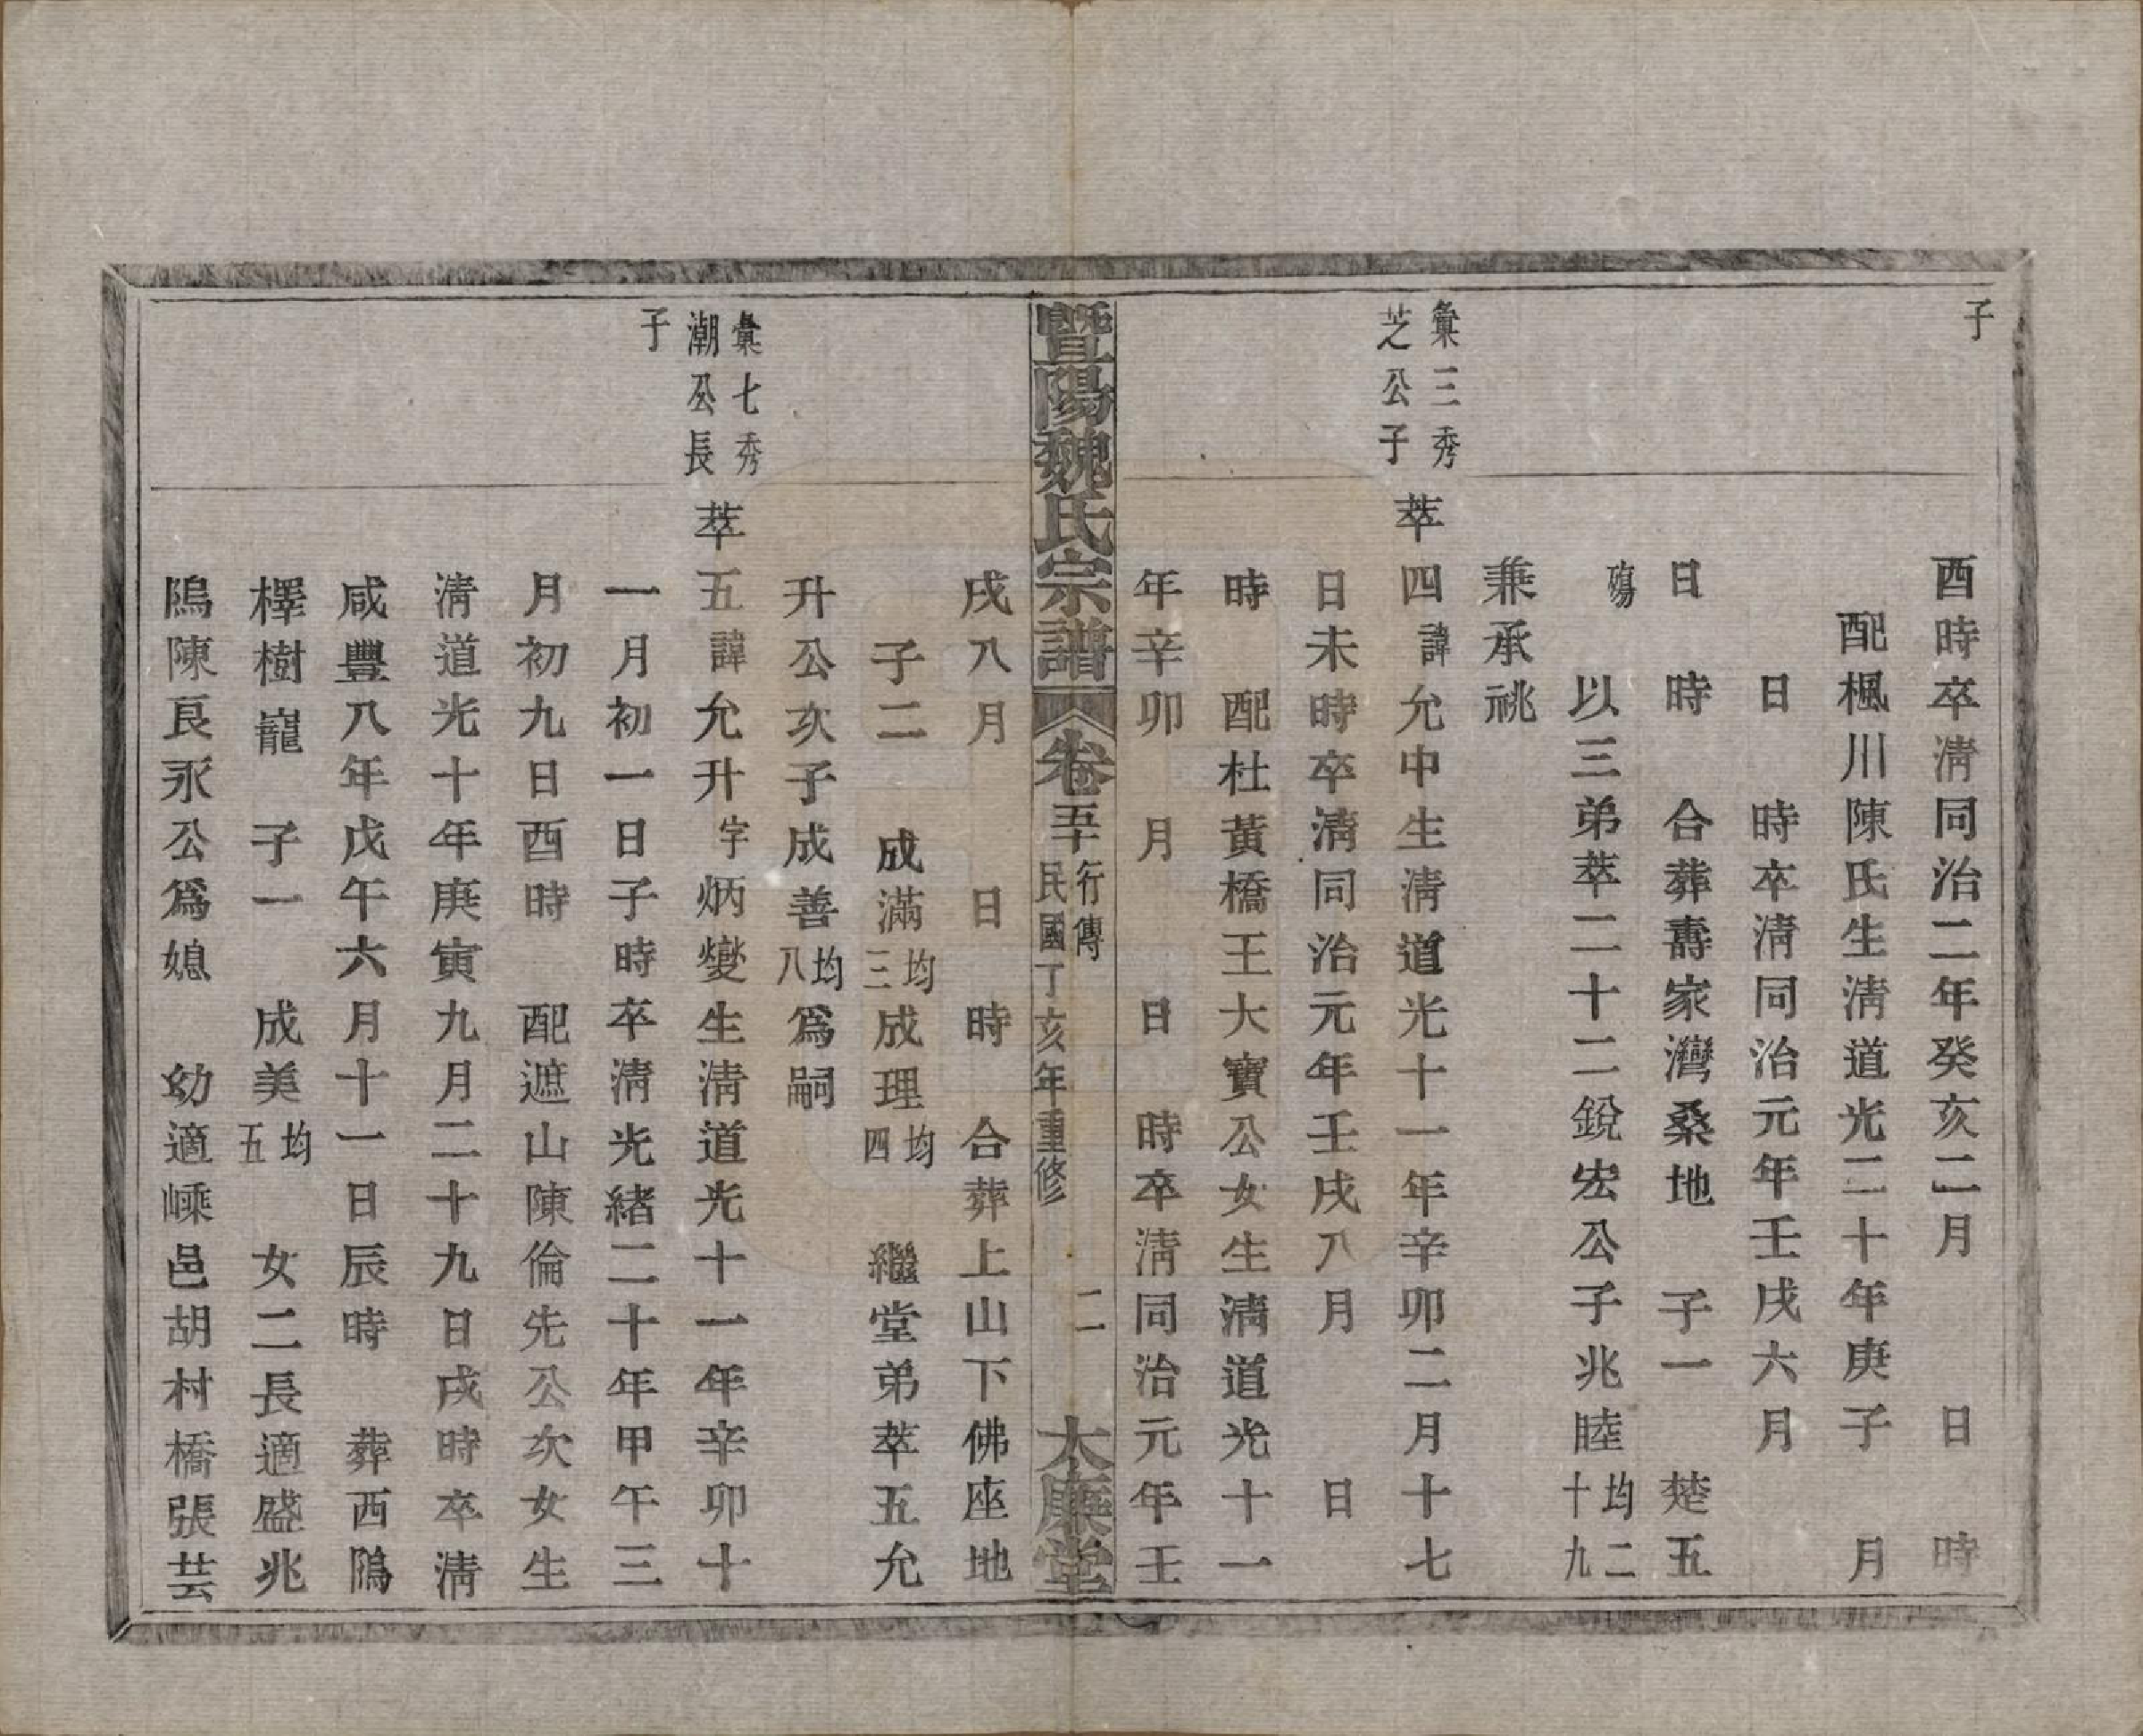 子
酉時卒淸同治二年癸亥二月　日　時
配楓川陳氏生淸道光二十年庚子　月
日　時卒淸同治元年壬戌六月
日　時　合葬壽家灣桑地　子一　楚五
殤
以三弟萃二十二銳宏公子兆睦均二十九
兼承祧
彙三秀芝公子
萃四諱允中生淸道光十一年辛卯二月十七
日未時卒淸同治元年壬戌八月　日
時　配杜黃橋王大寶公女生淸道光十一
年辛卯　月　日　時卒淸同治元年壬
暨陽魏氏宗譜　卷五十　行傳　民國丁亥年重修　二　大廉堂
戌八月　日　時　合葬上山下佛座地
子二　成滿均三成理均四　繼堂弟萃五允
升公次子成善均八爲嗣
彙七秀潮公長子
萃五諱允升字炳燮生淸道光十一年辛卯十
一月初一日子時卒淸光緒二十年甲午三
月初九日酉時　配遮山陳倫先公次女生
淸道光十年庚寅九月二十九日戌時卒淸
咸豐八年戊午六月十一日辰時　葬西隖
檡樹巃　子一　成美均五　女二長適盛兆
隖陳良永公爲媳　幼適嵊邑胡村橋張芸